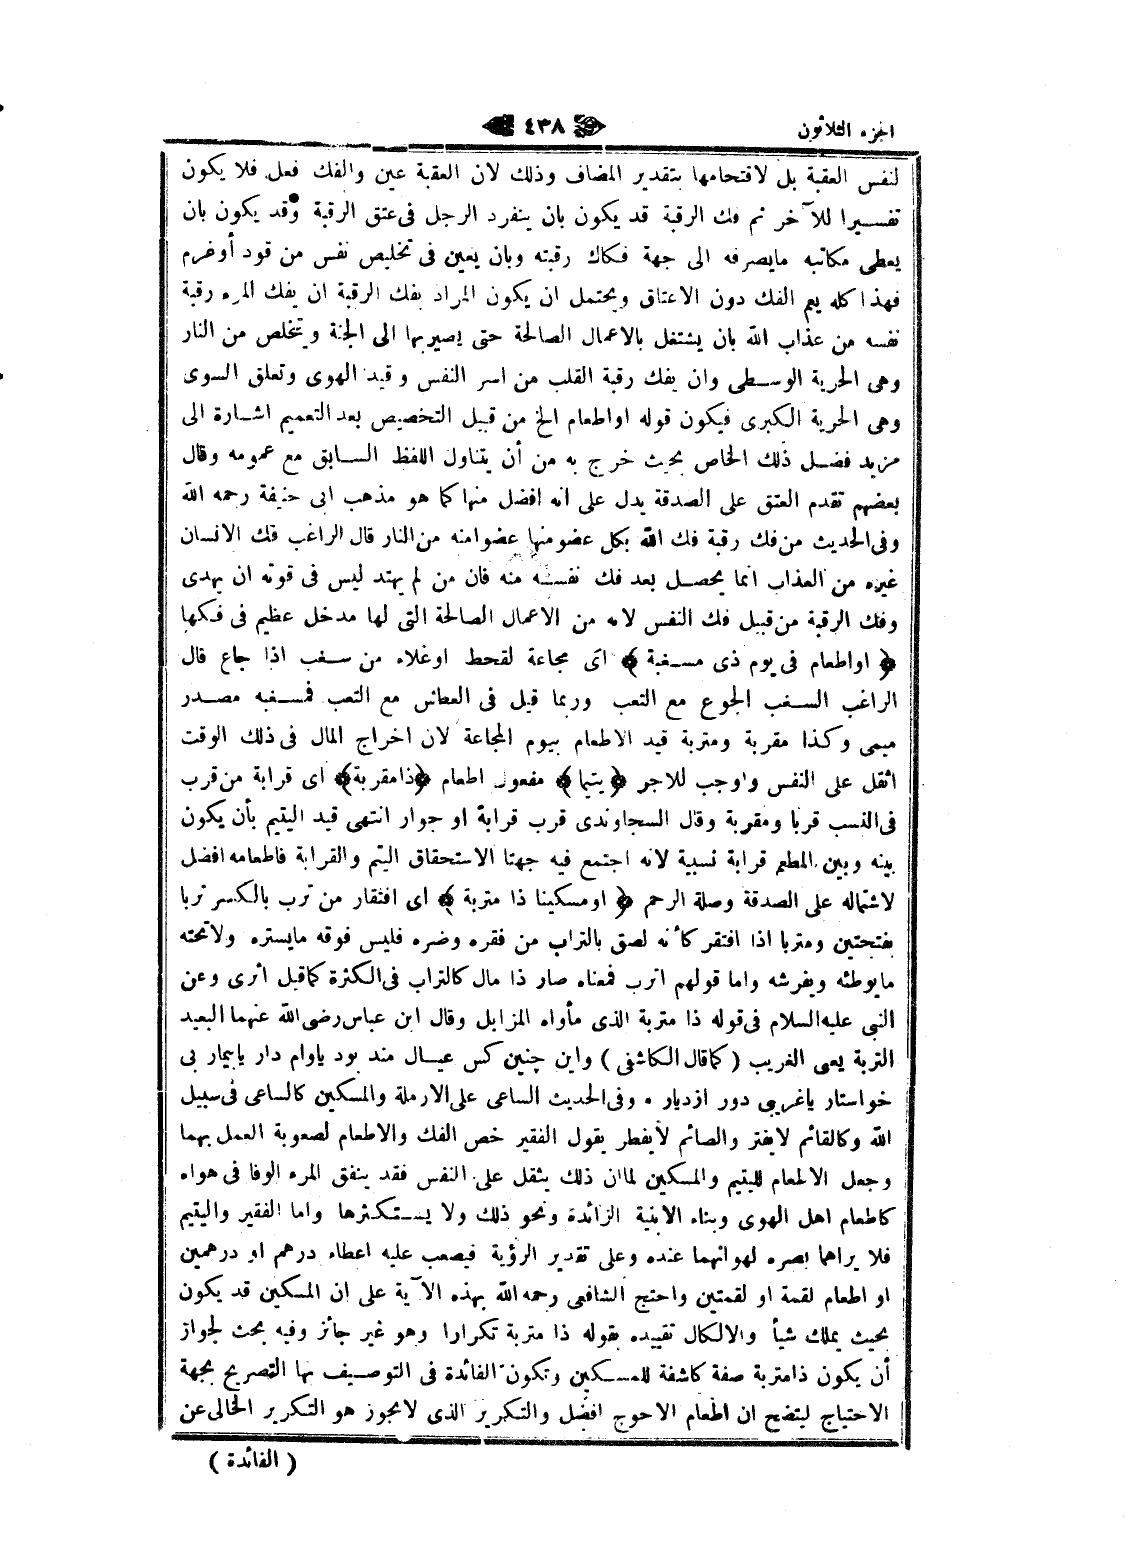 الجزء الثلاثون
٤٣٨
لنفس العقبة بل لاقتحامها بتقدير المضاف وذلك لان العقبة عين والفك فعل فلا يكون
تفسيرا للآخر ثم فك الرقبة قد يكون بان ينفرد الرجل فى عتق الرقبة وقد يكون بان
يعطى مكاتبه مايصرفه الى جهة فكاك رقبته وبان يعين فى تخليص نفس من قود أوغرم
فهذا كله يعم الفك دون الاعتاق ويحتمل ان يكون المراد بفك الرقبة ان يفك المرء رقبة
نفسه من عذاب الله بان يشتغل بالاعمال الصالحة حتى يصير بها الى الجنة ويتخلص من النار
وهى الحرية الوسطى وان يفك رقبة القلب من اسر النفس وقيد الهوى وتعلق السوى
وهى الحرية الكبرى فيكون قوله اواطعام الخ من قبيل التخصيص بعد التعميم اشارة الى
مزيد فضل ذلك الخاص بحيث خرج به من أن يتناول اللفظ السابق مع عمومه وقال
بعضهم تقدم العتق على الصدقة يدل على انه افضل منها كما هو مذهب ابى حنيفة رحمه الله
وفى الحديث من فك رقبة فك الله بكل عضو منها عضوا منه من النار قال الراغب فك الانسان
غيره من العذاب انما يحصل بعد فك نفسه منه فان من لم يهتد ليس فى قوته ان يهدى
وفك الرقبة من قبيل فك النفس لانه من الاعمال الصالحة التى لها مدخل عظيم فى فكها
﴿ اواطعام فى يوم ذى مسغبة ﴾ اى مجاعة لقحط اوغلاء من سغب اذا جاع قال
الراغب السغب الجوع مع التعب وربما قيل فى العطش مع التعب فمسغبه مصدر
ميمى وكذا مقربة ومتربة قيد الاطعام بيوم المجاعة لان اخراج المال فى ذلك الوقت
اثقل على النفس واوجب للاجر ﴿ يتيما ﴾ مفعول اطعام ﴿ ذامقربة ﴾ اى قرابة من قرب
فى النسب قربا ومقربة وقال السجاوندى قرب قرابة او جوار انتهى قيد اليتيم بأن يكون
بينه وبين المطعم قرابة نسبية لانه اجتمع فيه جهتا الاستحقاق اليتم والقرابة فاطعامه افضل
لاشتماله على الصدقة وصلة الرحم ﴿ اومسكينا ذا متربة ﴾ اى افتقار من ترب بالكسر تربا
بفتحتين ومتربا اذا افتقر كأنه لصق بالتراب من فقره وضره فليس فوقه مايستره ولاتحته
مايوطئه ويفرشه واما قولهم اترب فمعناه صار ذا مال كالتراب فى الكثرة كماقيل اثرى وعن
النبى عليه السلام فى قوله ذا متربة الذى مأواه المزابل وقال ابن عباس رضى الله عنهما البعيد
التربة يعى الغريب ( كماقال الكاشفى ) واين چنين كس عيال مند بود ياوام دار يابيمار بى
خواستار ياغريبى دور ازديار . وفى الحديث الساعى على الارملة والمسكين كالساعى فى سبيل
الله وكالقائم لايفتر والصائم لايفطر يقول الفقير خص الفك والاطعام لصعوبة العمل بهما
وجعل الاطعام لليتيم والمسكين لماان ذلك يثقل على النفس فقد ينفق المرء الوفا فى هواه
كاطعام اهل الهوى وبناء الابنية الزائدة ونحو ذلك ولا يستكثرها واما الفقير واليتيم
فلا يراهما بصره لهوانهما عنده وعلى تقدير الرؤية فيصعب عليه اعطاء درهم او درهمين
او اطعام لقمة او لقمتين واحتج الشافعى رحمه الله بهذه الآية على ان المسكين قد يكون
بحيث يملك شيأ والالكال تقييده بقوله ذا متربة تكرارا وهو غير جائز وفيه بحث لجواز
أن يكون ذامتربة صفة كاشفة للمسكين وتكون الفائدة فى التوصيف بها التصريح بجهة
الاحتياج ليتضح ان اطعام الاحوج افضل والتكرير الذى لايجوز هو التكرير الخالى عن
( الفائدة )